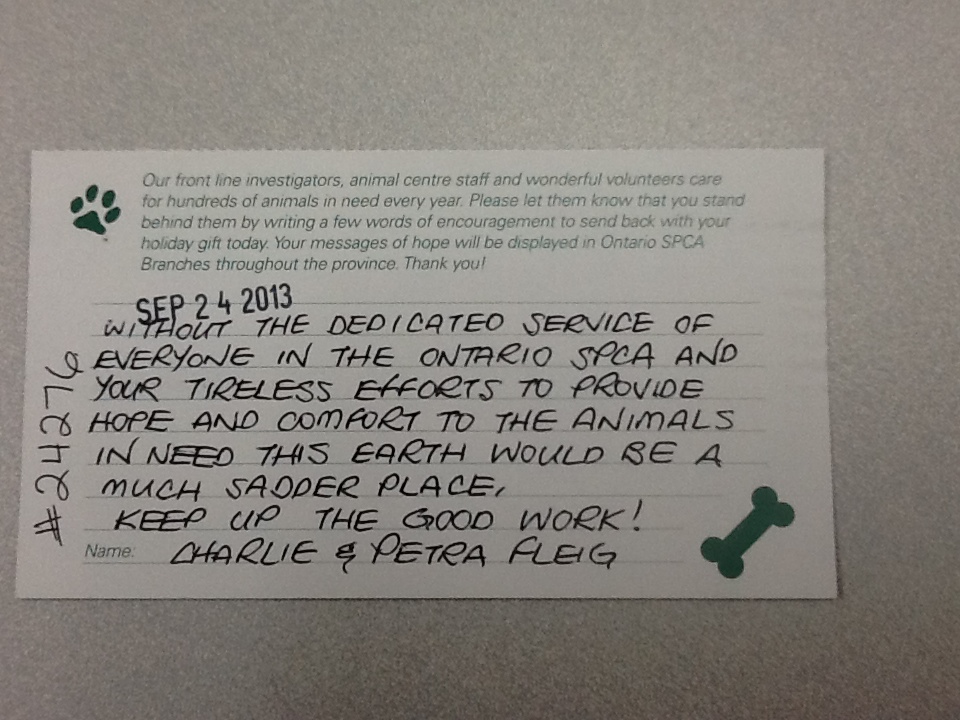 Our front line investigators, animal centre staff and wonderful volunteers care
for hundreds of animals in need every year. Please let them know that you stand
behind them by writing a few words of encouragement to send back with your
holiday gift today. Your messages of hope will be displayed in Ontario SPCA
Branches throughout the province. Thank you!
SEP 24 2013
WITHOUT THE DEDICATED SERVICE OF
EVERYONE IN THE ONTARIO SPCA AND
YOUR TIRELESS EFFORTS TO PROVIDE
HOPE AND COMFORT TO THE ANIMALS
IN NEED THIS EARTH WOULD BE A
MUCH SADDER PLACE,
KEEP UP THE GOOD WORK!
Name: CHARLIE & PETRA FLEIG
#242276